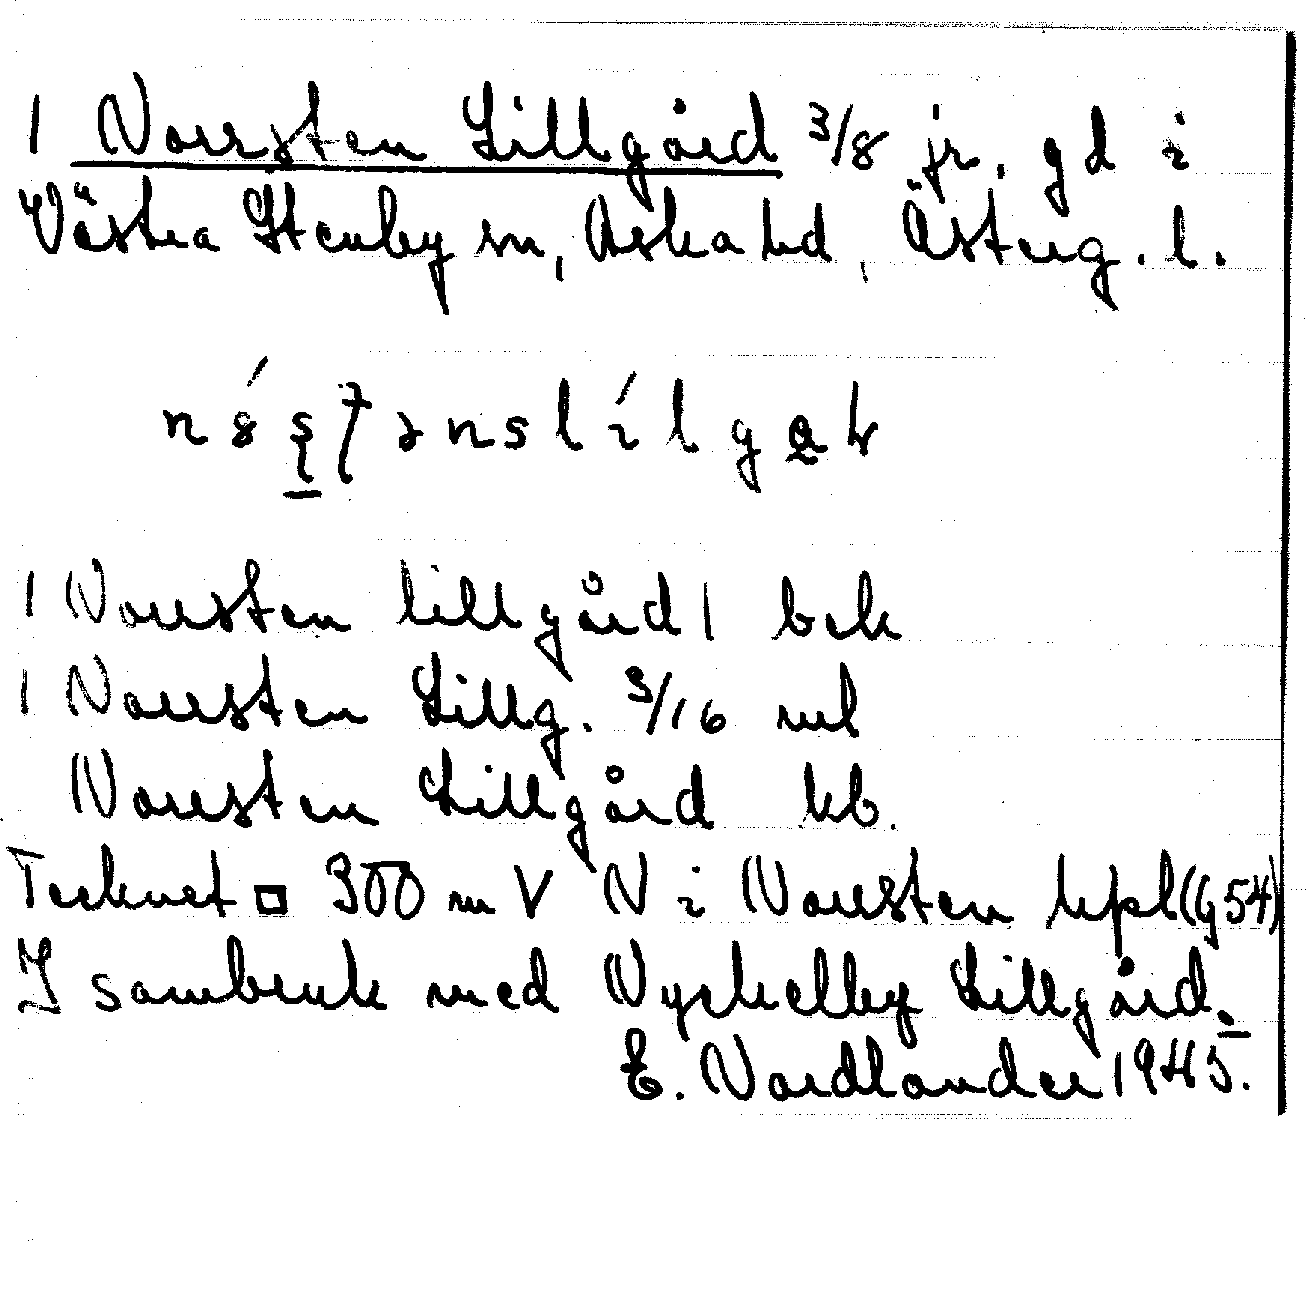 1 Norrsten Lillgård 3/8 jr. gd i
Västra Stenby sn, Aska hd, Österg. l.
1 Norrsten lillgård 1 bek
1 Norrsten Lillg. 3/16 ml
Norrsten Lillgård kb.
Tecknet □ 300 m V N i Norrsten hpl (G54)
I sambruk med Nyckelby Lillgård.
E. Nordlander 1945.